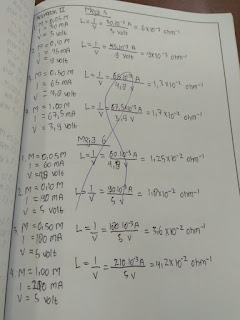 Meja 5
M = 0,05 M
I = 30 mA
V = 5 volt
L = I/V = 30.10⁻³ A / 5 volt = 6 x 10⁻³ ohm⁻¹
M = 0,10 M
I = 45 mA
V = 5 volt
L = I/V = 45.10⁻³ A / 5 volt = 9 x 10⁻³ ohm⁻¹
M = 0,50 M
I = 65 mA
V = 4,8 volt
L = I/V = 65.10⁻³ A / 4,8 V = 1,3 x 10⁻² ohm⁻¹
M = 1,00 M
I = 67,5 mA
V = 3,9 volt
L = I/V = 67,5 x 10⁻³ A / 3,9 V = 1,7 x 10⁻² ohm⁻¹
Meja 6
1. M = 0,05 M
I = 60 mA
V = 4,8 volt
L = I/V = 60.10⁻³ A / 4,8 V = 1,25 x 10⁻² ohm⁻¹
2. M = 0,10 M
I = 90 mA
V = 5 volt
L = I/V = 90.10⁻³ A / 5 V = 1,8 x 10⁻² ohm⁻¹
3. M = 0,50 M
I = 180 mA
V = 5 volt
L = I/V = 180.10⁻³ A / 5 V = 3,6 x 10⁻² ohm⁻¹
4. M = 1,00 M
I = 210 mA
V = 5 volt
L = I/V = 210.10⁻³ A / 5 V = 4,2 x 10⁻² ohm⁻¹